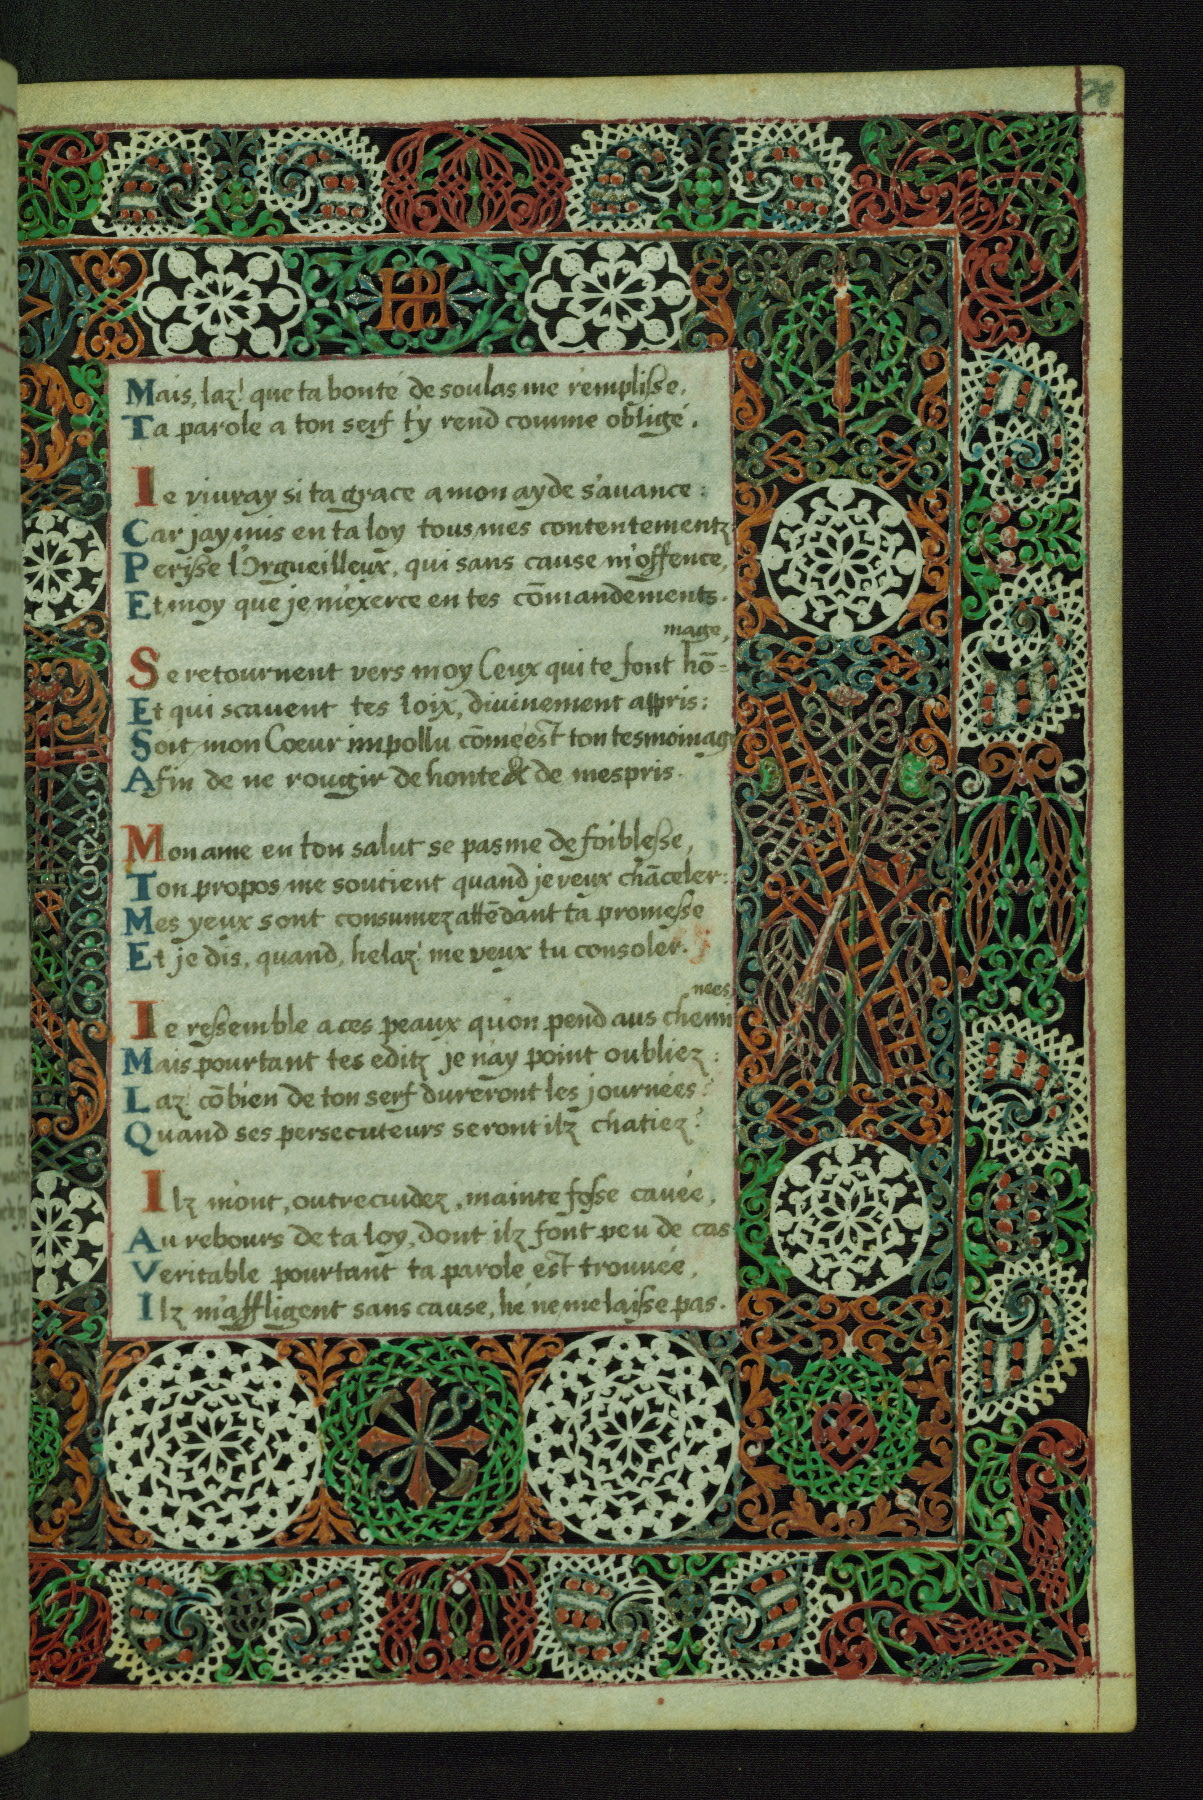 Mais, laz! que ta bonté de soulas me remplisse,
Ta parole a ton serf t'y rend comme obligé.
Ie vivray si ta grace a mon ayde s'auance:
Car jay mis en ta loy tous mes contentementz
Perisse l'Orgueilleux, qui sans cause m'offence,
Et moy que je m'exerce en tes cōmandements.
mage,
Se retournent vers moy Ceux qui te font hō-
Et qui scauent tes loix, diuinement appris:
Soit mon Coeur impollu cōme est ton tesmoinag
Afin de ne rougir de honte & de mespris.
Mon ame en ton salut se pasme de foiblesse,
Ton propos me soutient quand je veux chāceler:
Mes yeux sont consumez attēdant ta promesse
Et je dis, quand, helaz! me veux tu consoler.
nees,
Ie ressemble a ces peaux qu'on pend aus chemi
Mais pourtant tes editz je n'ay point oubliez:
Laz cōbien de ton serf dureront les journées?
Quand ses persecuteurs seront ilz chatiez?
Ilz m'ont, outrecuidez, mainte fosse cauée,
Au rebours de ta loy, dont ilz font peu de cas
Veritable pourtant ta parole est trouuée,
Ilz m'affligent sans cause, hé ne me laisse pas.